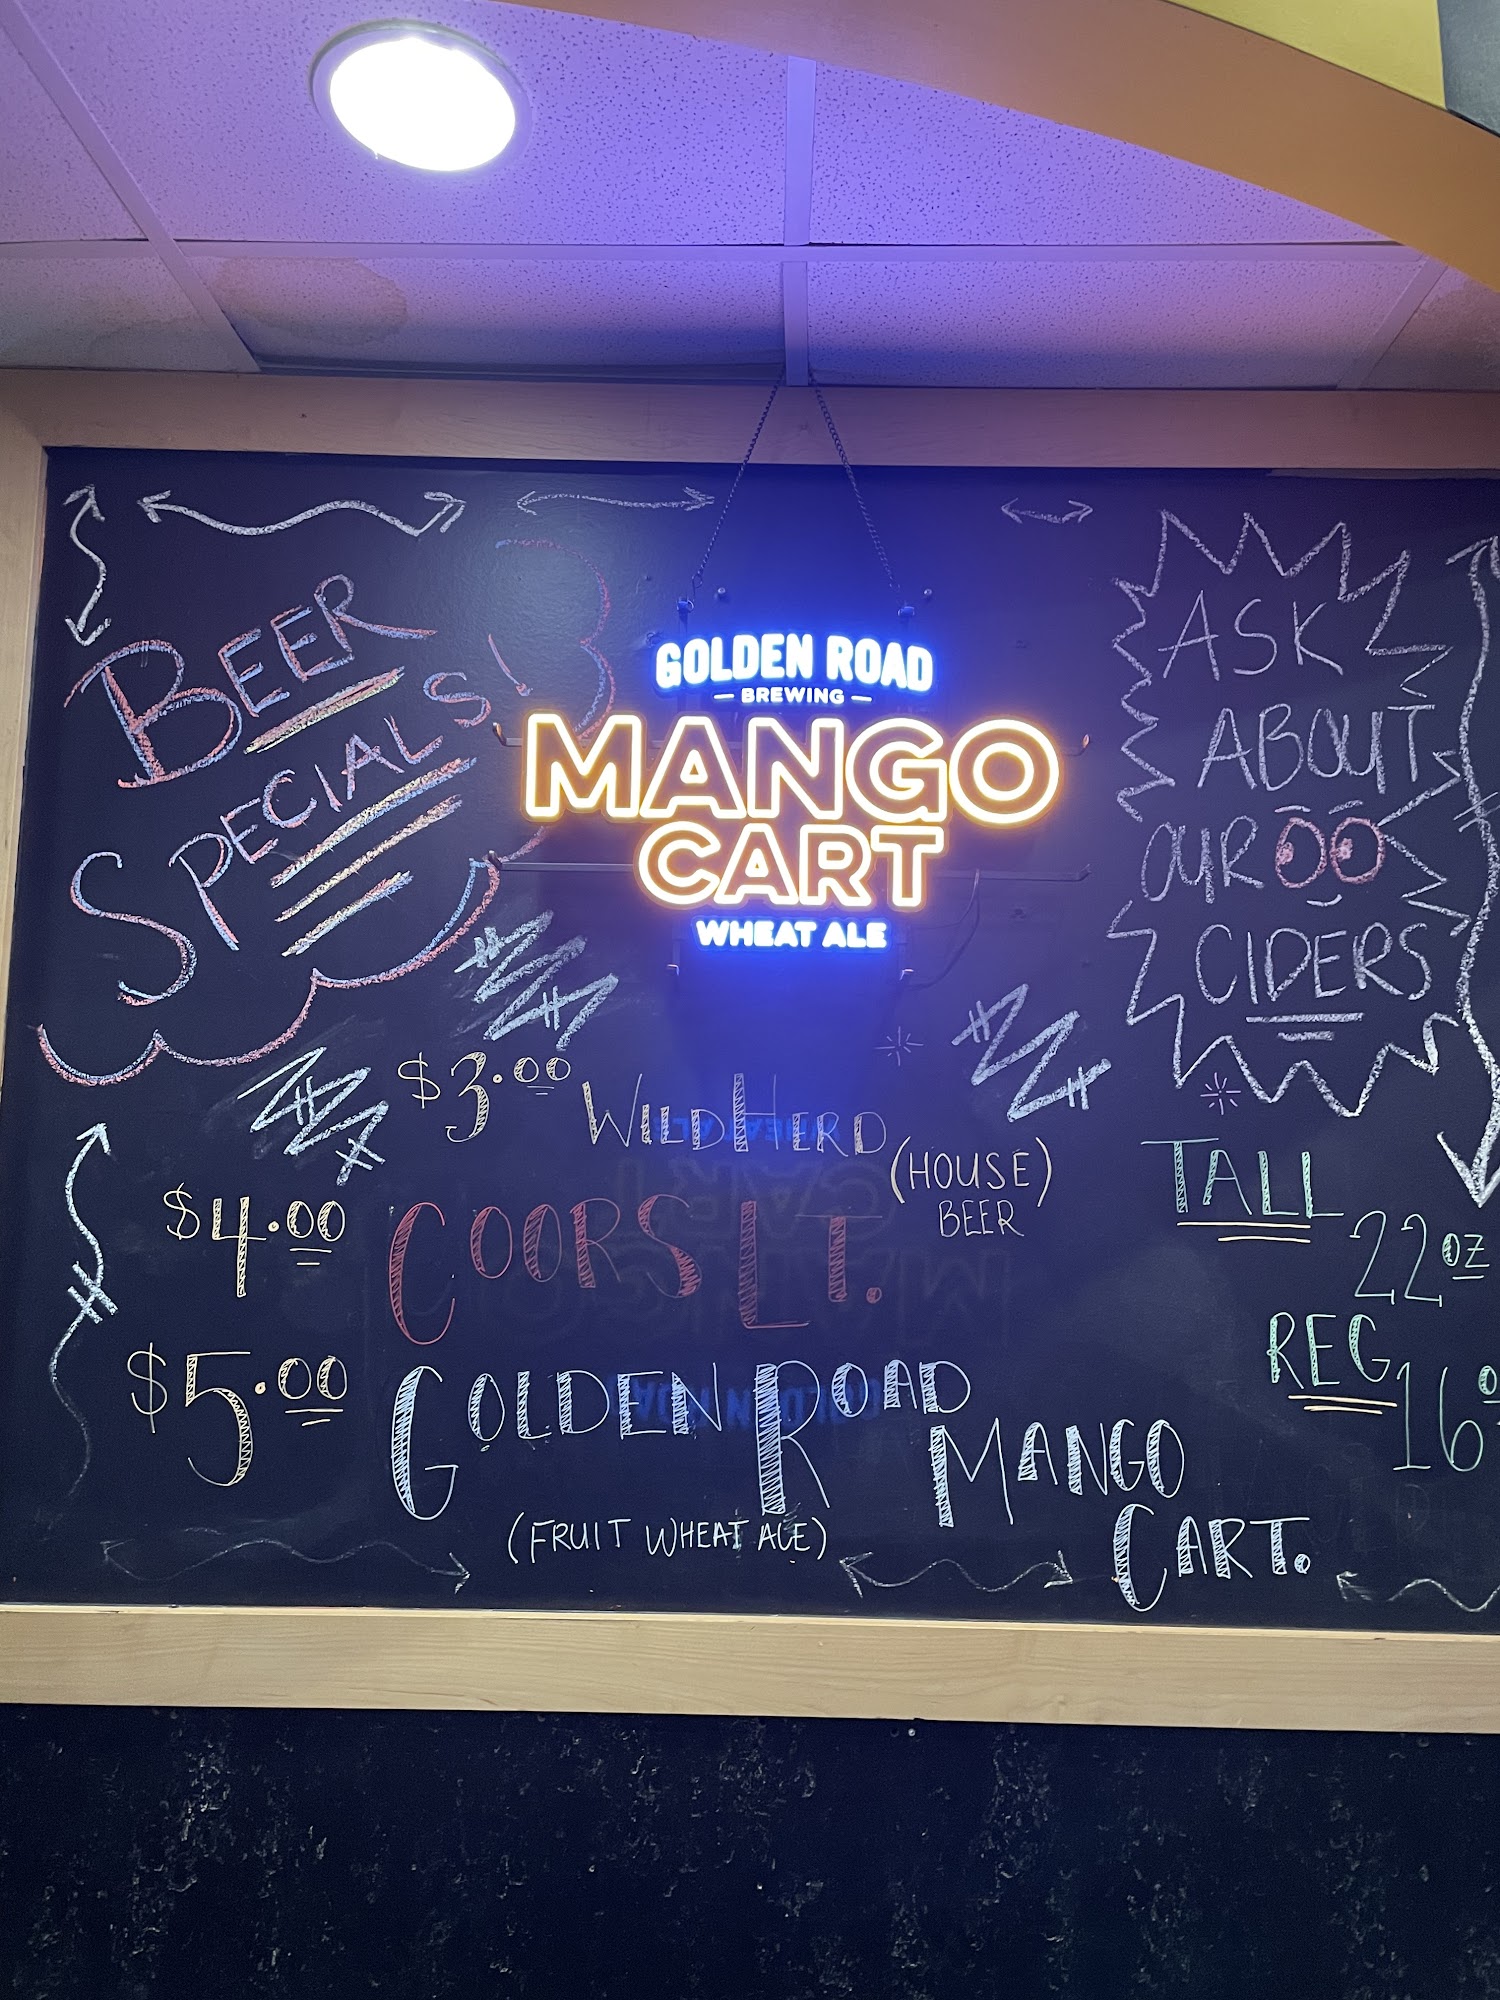 BEER
SPECIALS!
GOLDEN ROAD
— BREWING —
MANGO
CART
WHEAT ALE
ASK
ABOUT
OUR
CIDERS
$3.00 WILD HERD
(HOUSE)
BEER
$4.00 COORS LT.
$5.00 GOLDEN ROAD
MANGO
CART.
(FRUIT WHEAT ALE)
TALL
22oz
REG
16